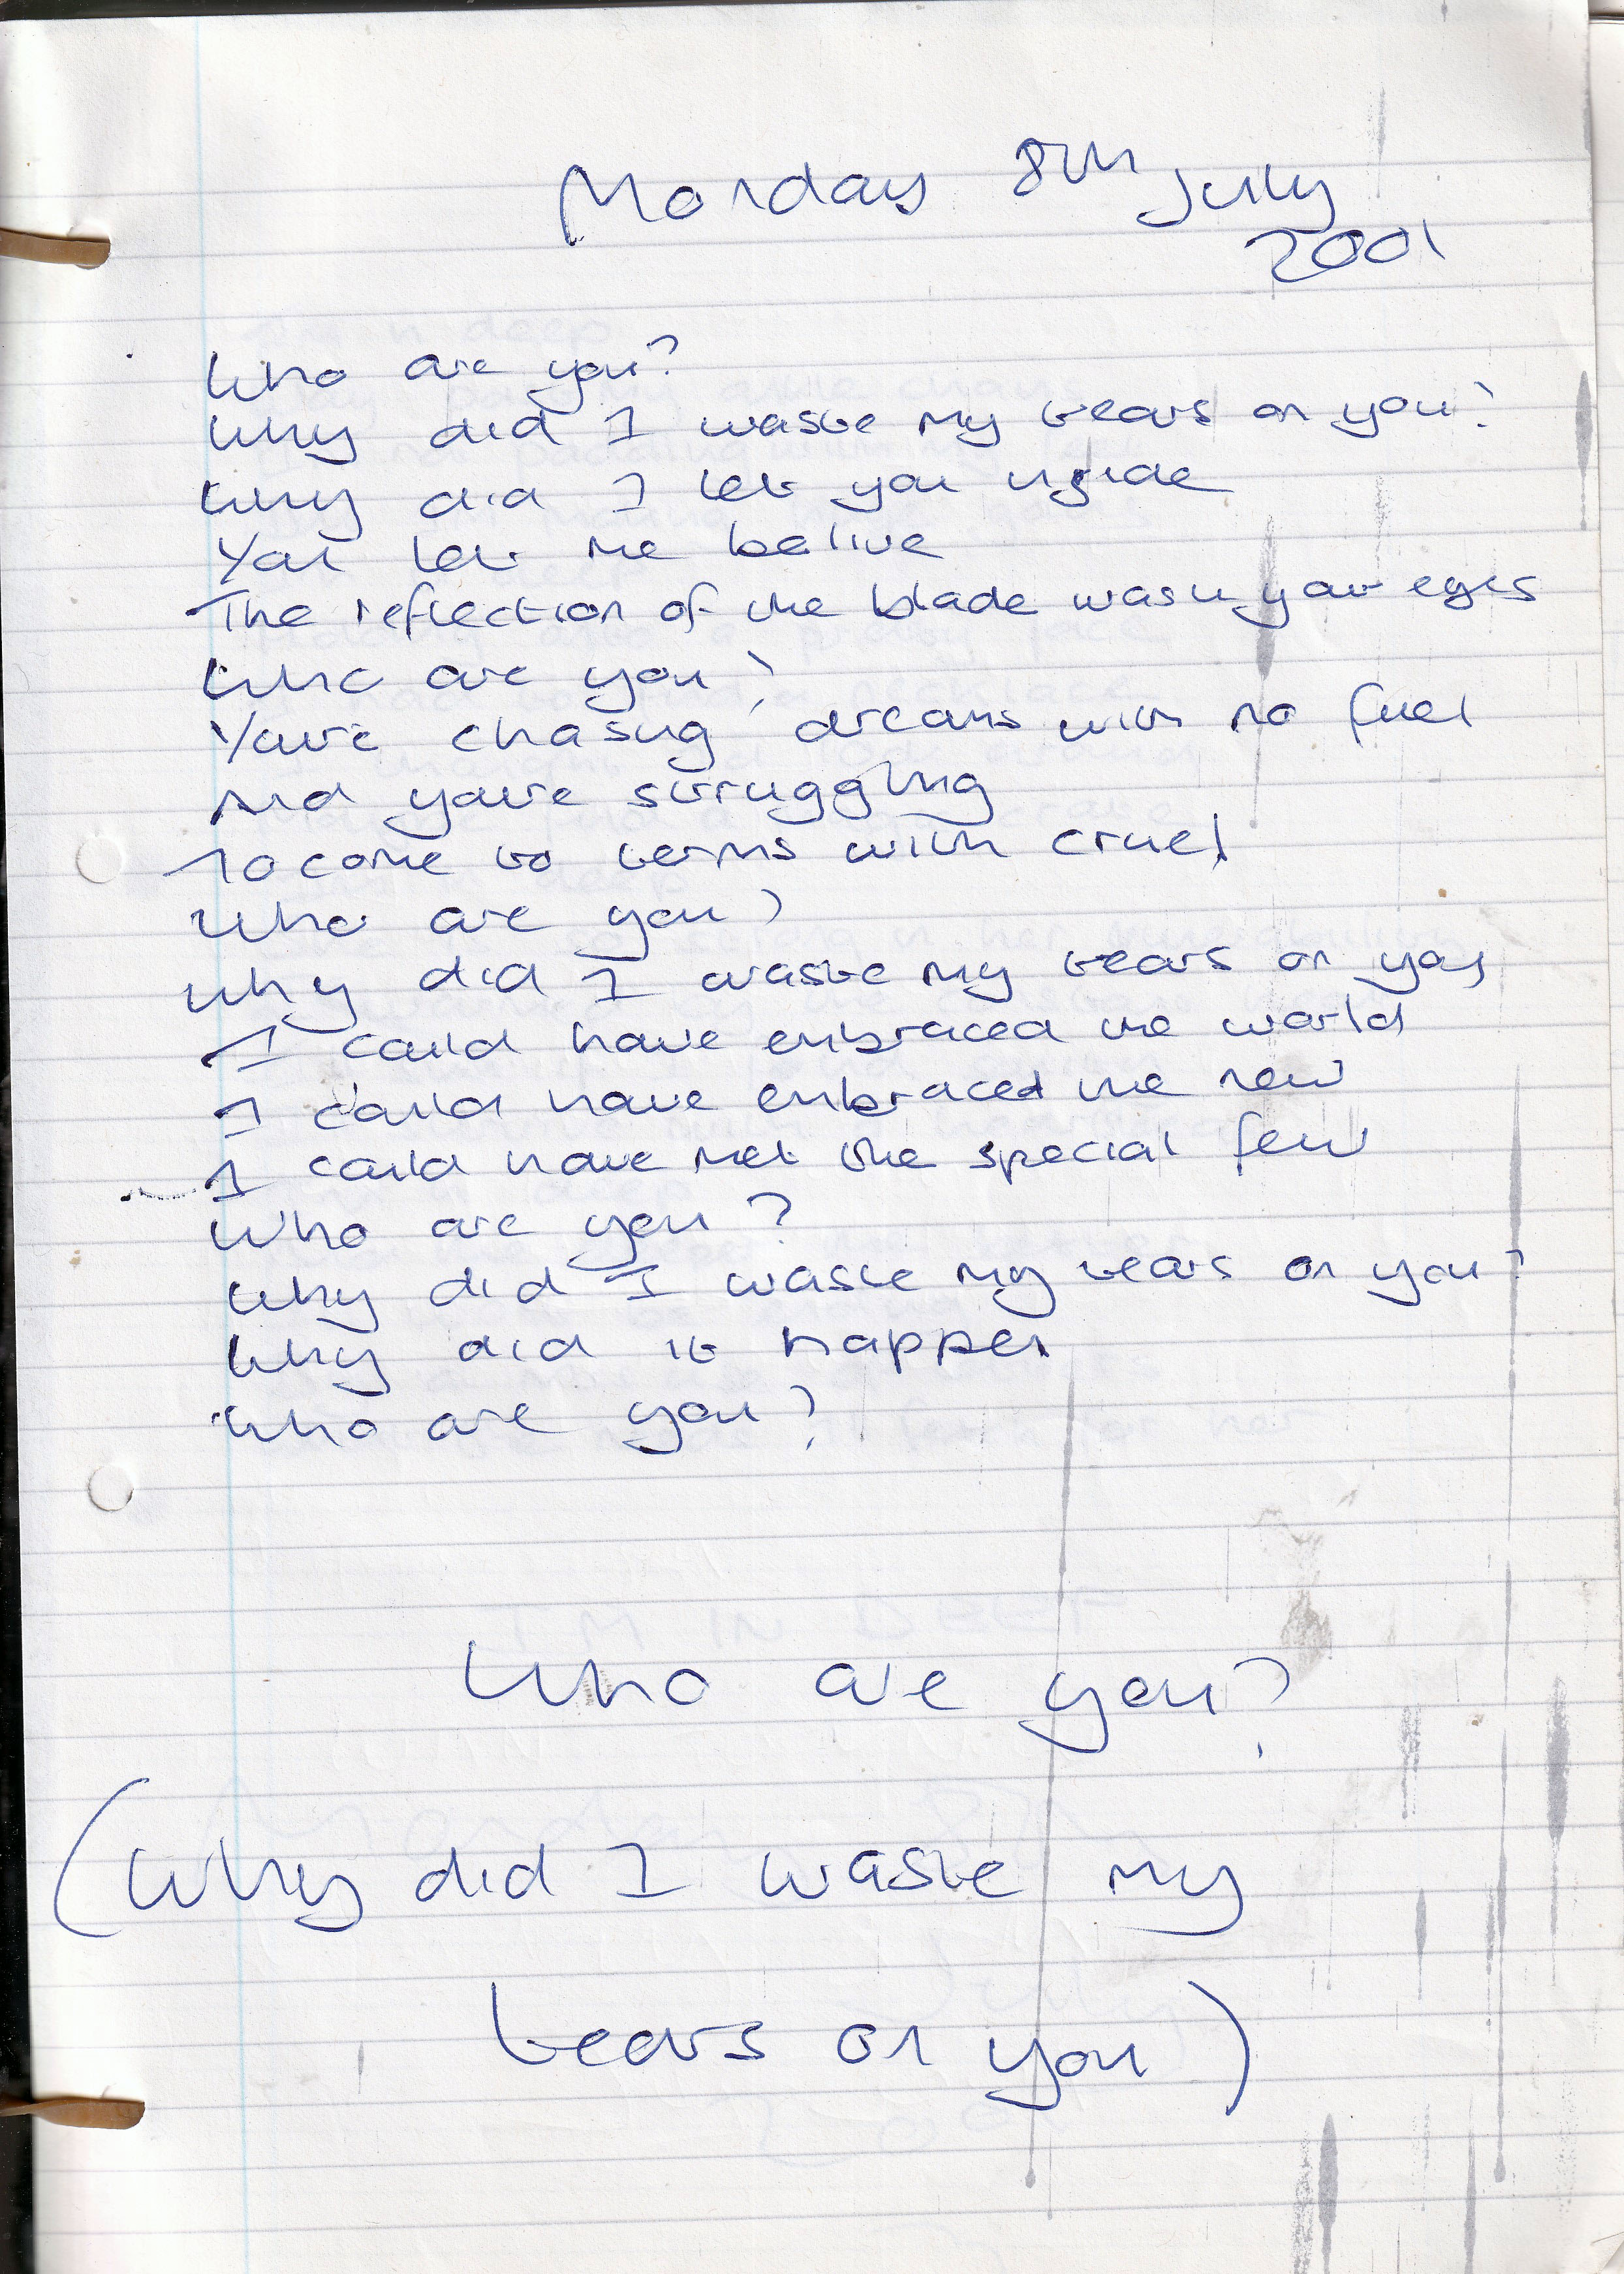 Monday 8th July
2001
Who are you?
Why did I waste my tears on you?
Why did I let you inside
You let me belive
The reflection of the blade was in your eyes
Who are you?
You're chasing dreams with no fuel
And you're struggling
To come to terms with cruel
Who are you?
Why did I waste my tears on you
I could have embraced the world
I could have embraced the new
I could have met the special few
Who are you?
Why did I waste my tears on you?
Why did it happen
Who are you?
Who are you?
(Why did I waste my
tears on you)